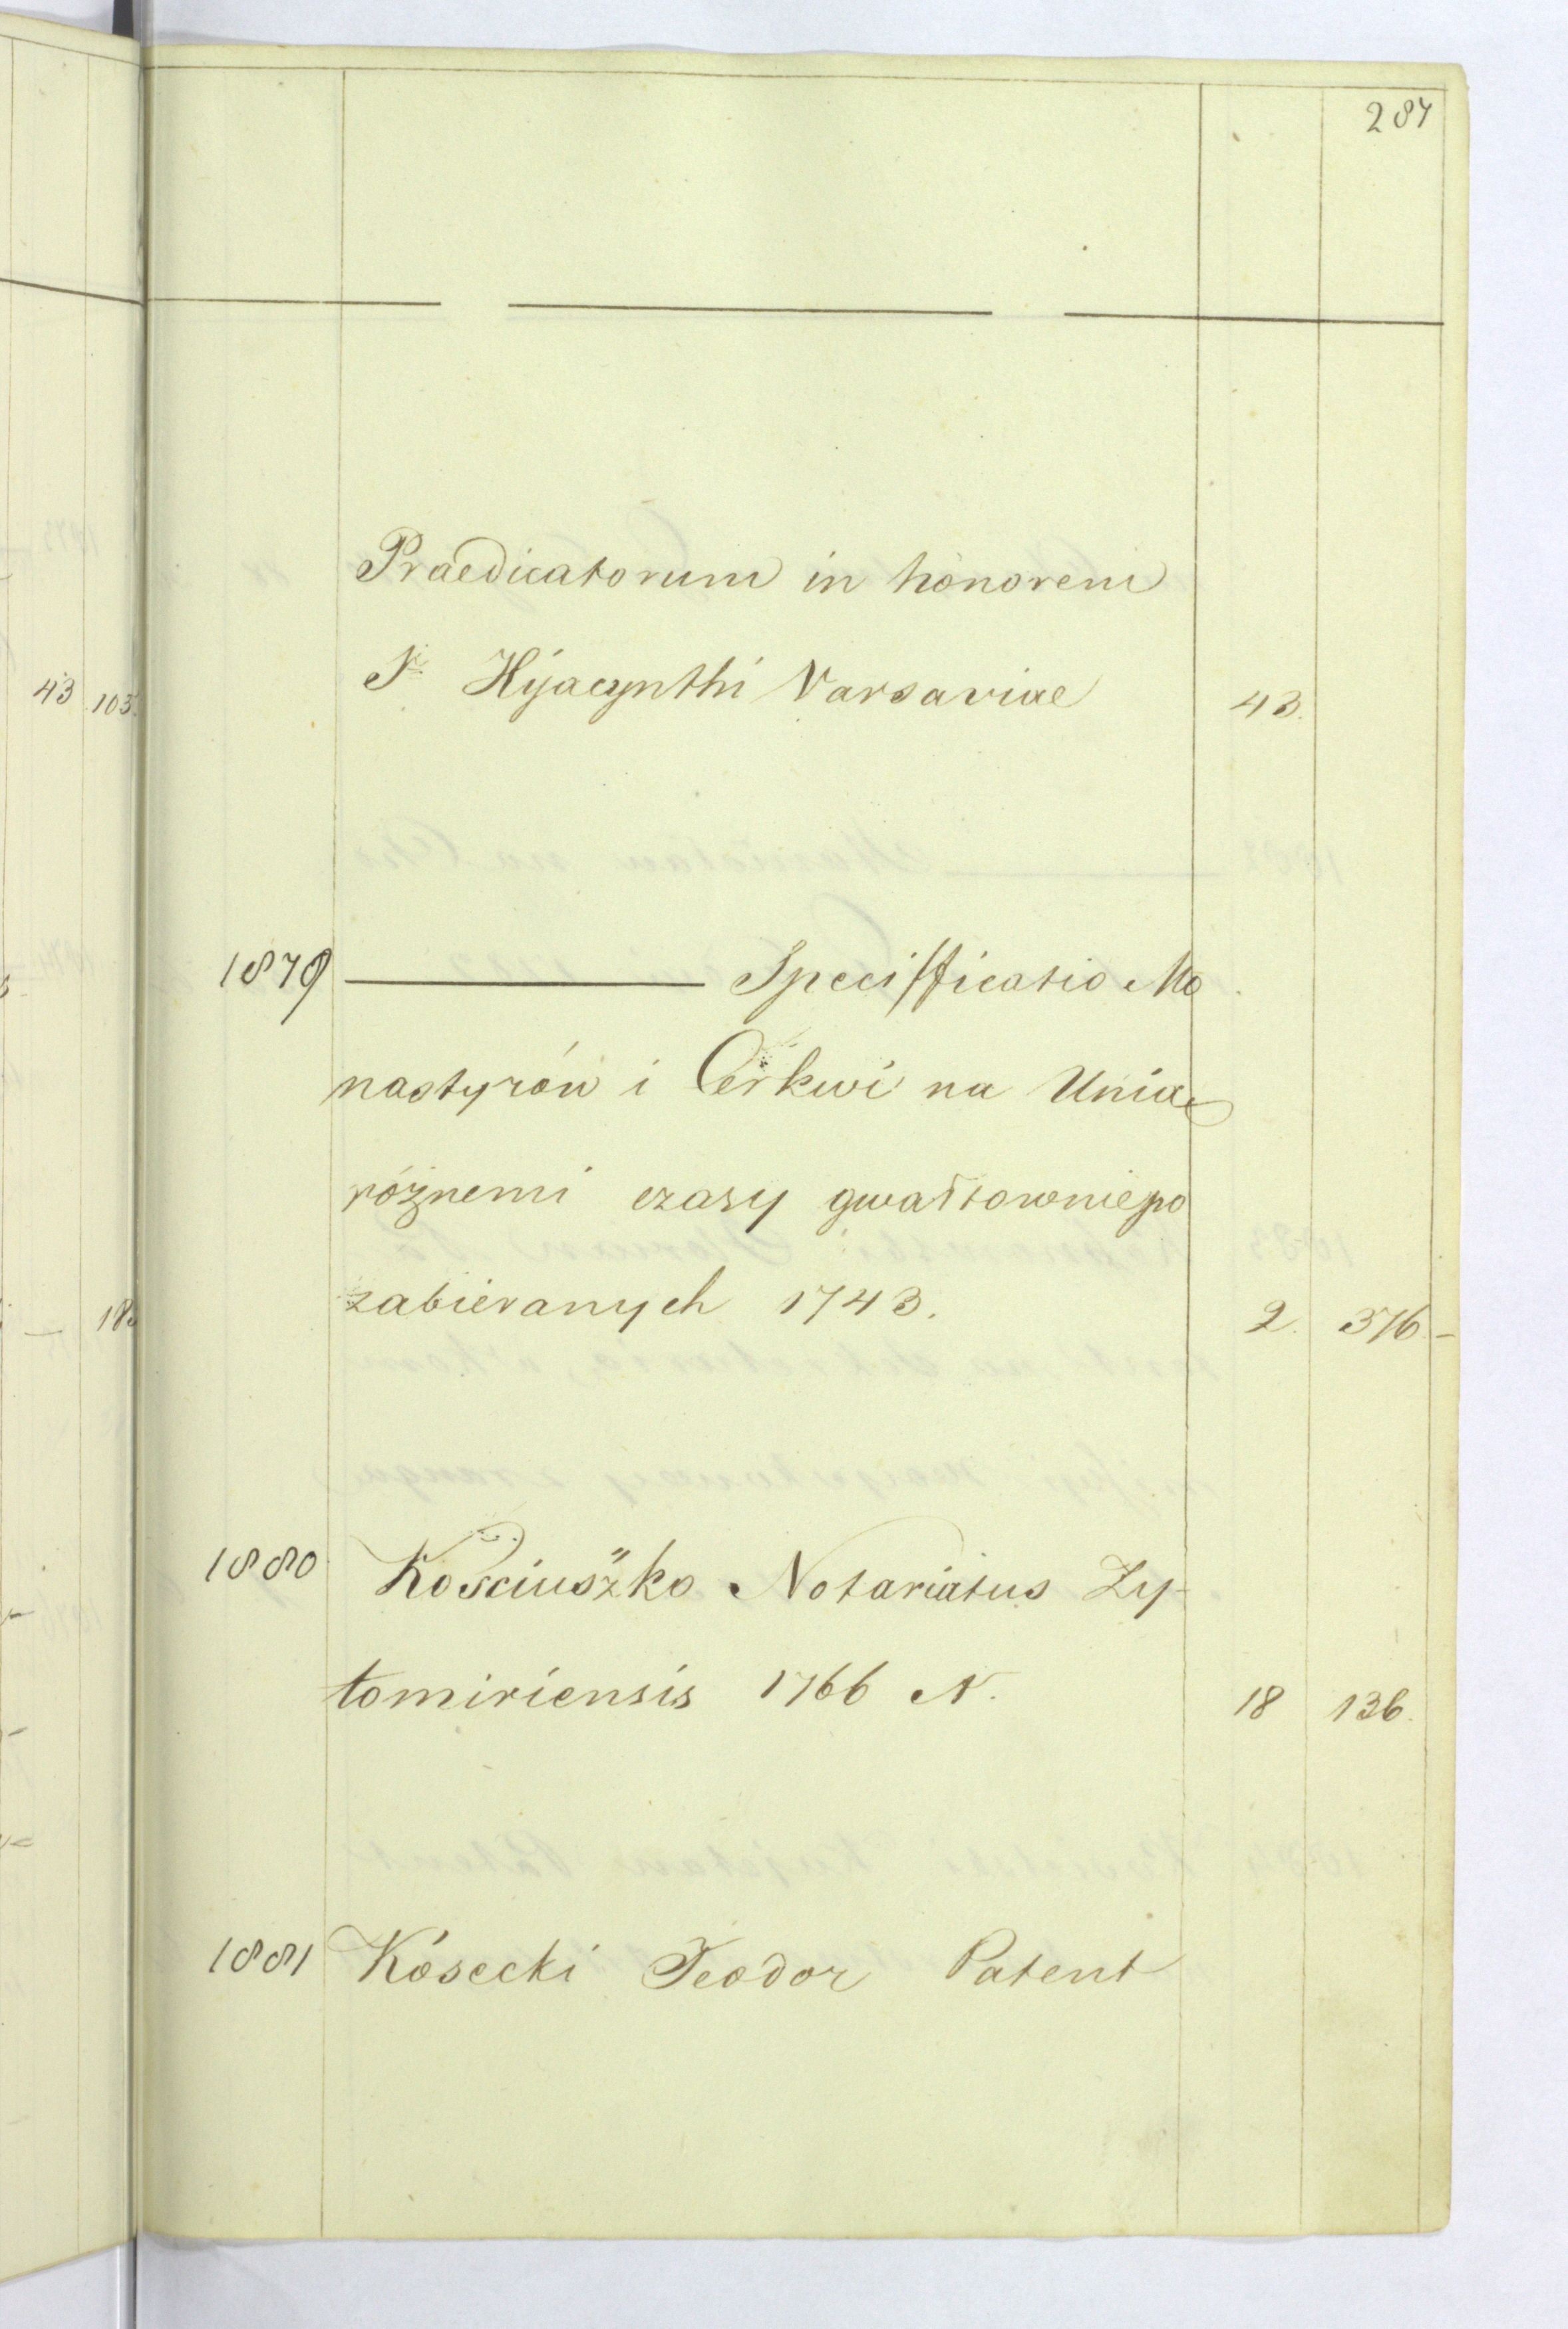 287
Praedicatorum in honorem
S. Hyacynthi Varsaviae 43.
1879 ——— Specifficatio Mo
nastyrów i Cerkwi na Unią
różnemi czasy gwałtownie po
zabieranych 1743. 2. 376.
1880 Kosciuszko Notariatus Zy-
tomiriensis 1766 N. 18 136.
1881 Kósecki Teodor Patent
43 103